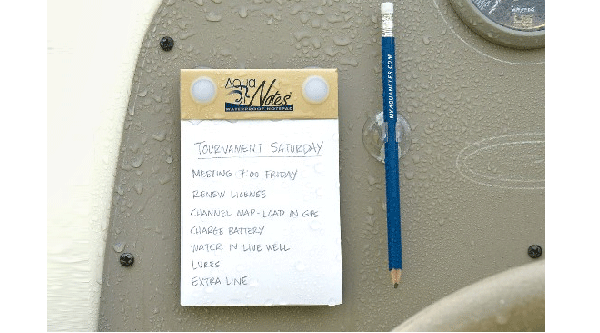 Aqua
Notes
WATERPROOF NOTEPAD
MYAQUANOTES.COM
TOURNAMENT SATURDAY
MEETING 7:00 FRIDAY
RENEW LICENSE
CHANNEL MAP - LOAD IN GPS
CHARGE BATTERY
WATER IN LIVE WELL
LURES
EXTRA LINE